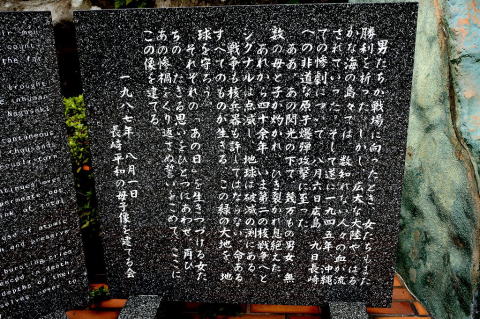 eir men
count
the far
brought
inhuman
Nagasaki
thousands
男たちが戦場に向ったとき、女たちもまた
勝利を祈った。しかし、広大な大陸や、はる
かな海の島々では、数知れない人々の血が流
されていった。そして遂に一九四五年、沖縄
での惨劇につづいて、八月六日広島、九日長崎
への非道な原子爆弾攻撃に至った。
ああ、あの閃光の下で、幾万の男女、無
数の母と子が灼かれ、ひき裂かれ息絶えた。
あれから四十余年、いま第二の核戦争へと
シグナルは点滅し、地球は破滅の淵にある。
戦争も核兵器も許してはならない。命ある
すべてのものが生きる、この緑の大地を、地
球を守ろう。
それぞれの「あの日」を生きつづける女た
ちの、たぎる思いをひとつにあわせ、再び
あの惨禍をくり返さぬ誓いをこめて、ここに
この像を建てる。
一九八七年 八月一日
長崎平和の母子像を建てる会